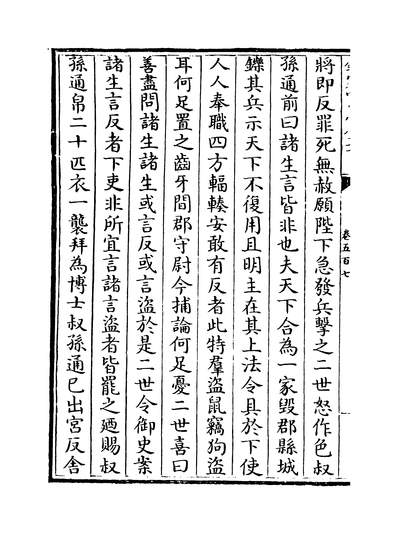 將即反罪死無赦願陛下急發兵擊之二世怒作色叔
孫通前曰諸生言皆非也夫天下合為一家毀郡縣城
鑠其兵示天下不復用且明主在其上法令具於下使
人人奉職四方輻輳安敢有反者此特羣盜鼠竊狗盜
耳何足置之齒牙間郡守尉今捕論何足憂二世喜曰
善盡問諸生諸生或言反或言盜於是二世令御史案
諸生言反者下吏非所宜言諸言盜者皆罷之廼賜叔
孫通帛二十匹衣一襲拜為博士叔孫通已出宮反舍
卷五百七